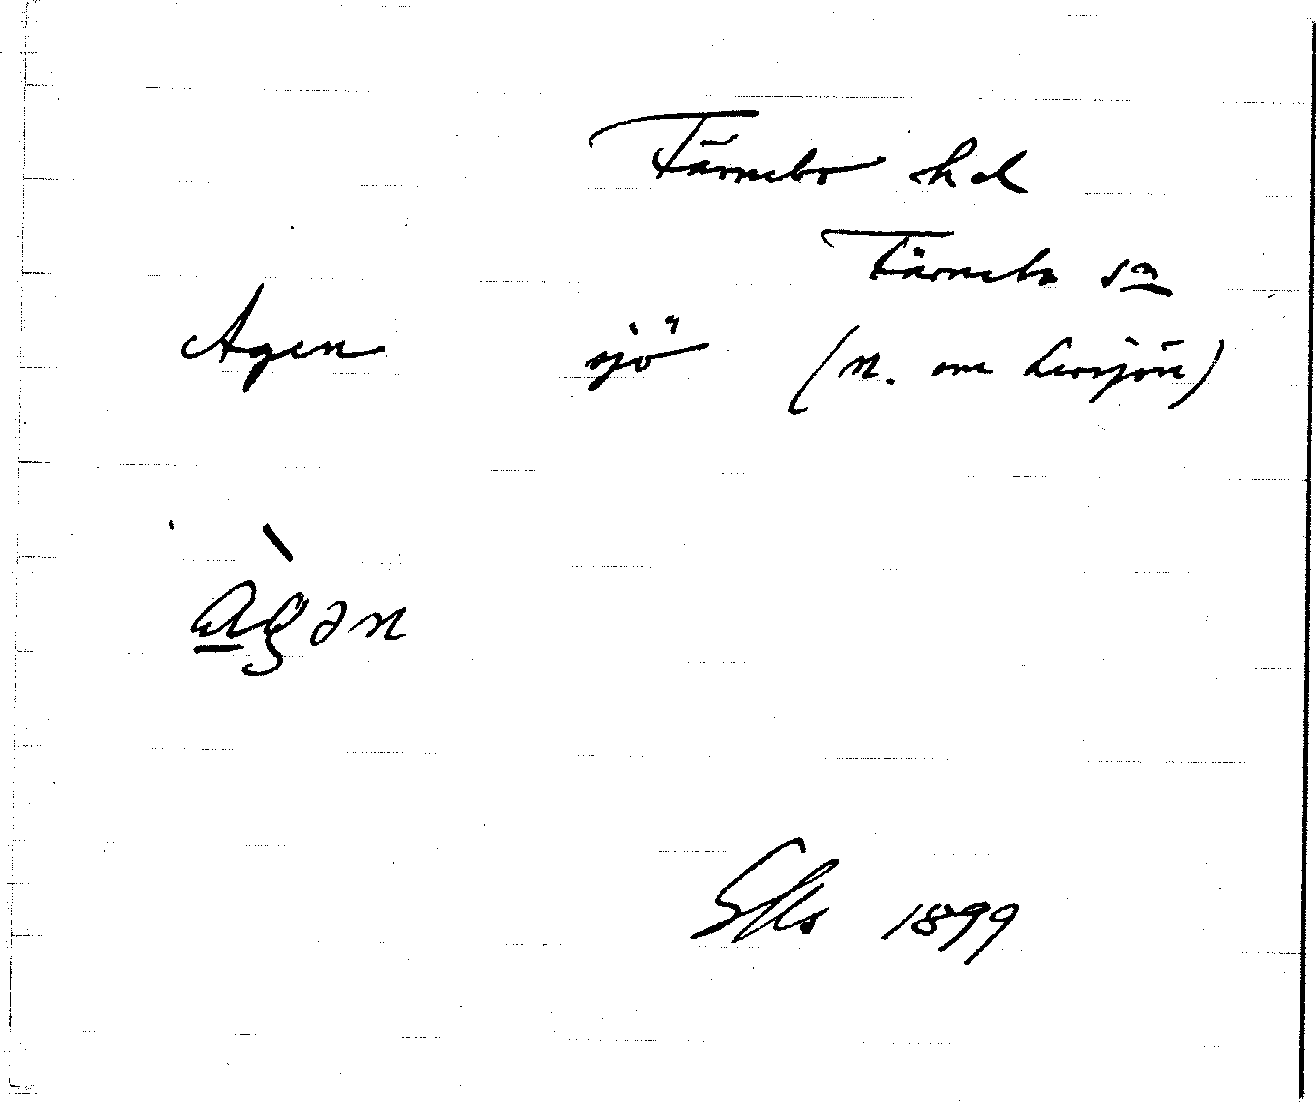 Färnebo hd
Färnebo sn
Agen sjö (n. om Lersjön)
àgən
1899